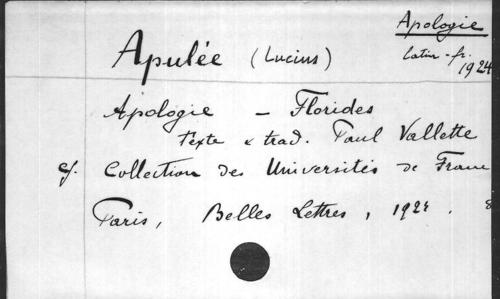 Apologie
Latin-fr.
1924
Apulée (Lucius)
Apologie – Florides
Texte & trad. Paul Vallette
cf. Collection des Universités de France
Paris, Belles Lettres, 1924.